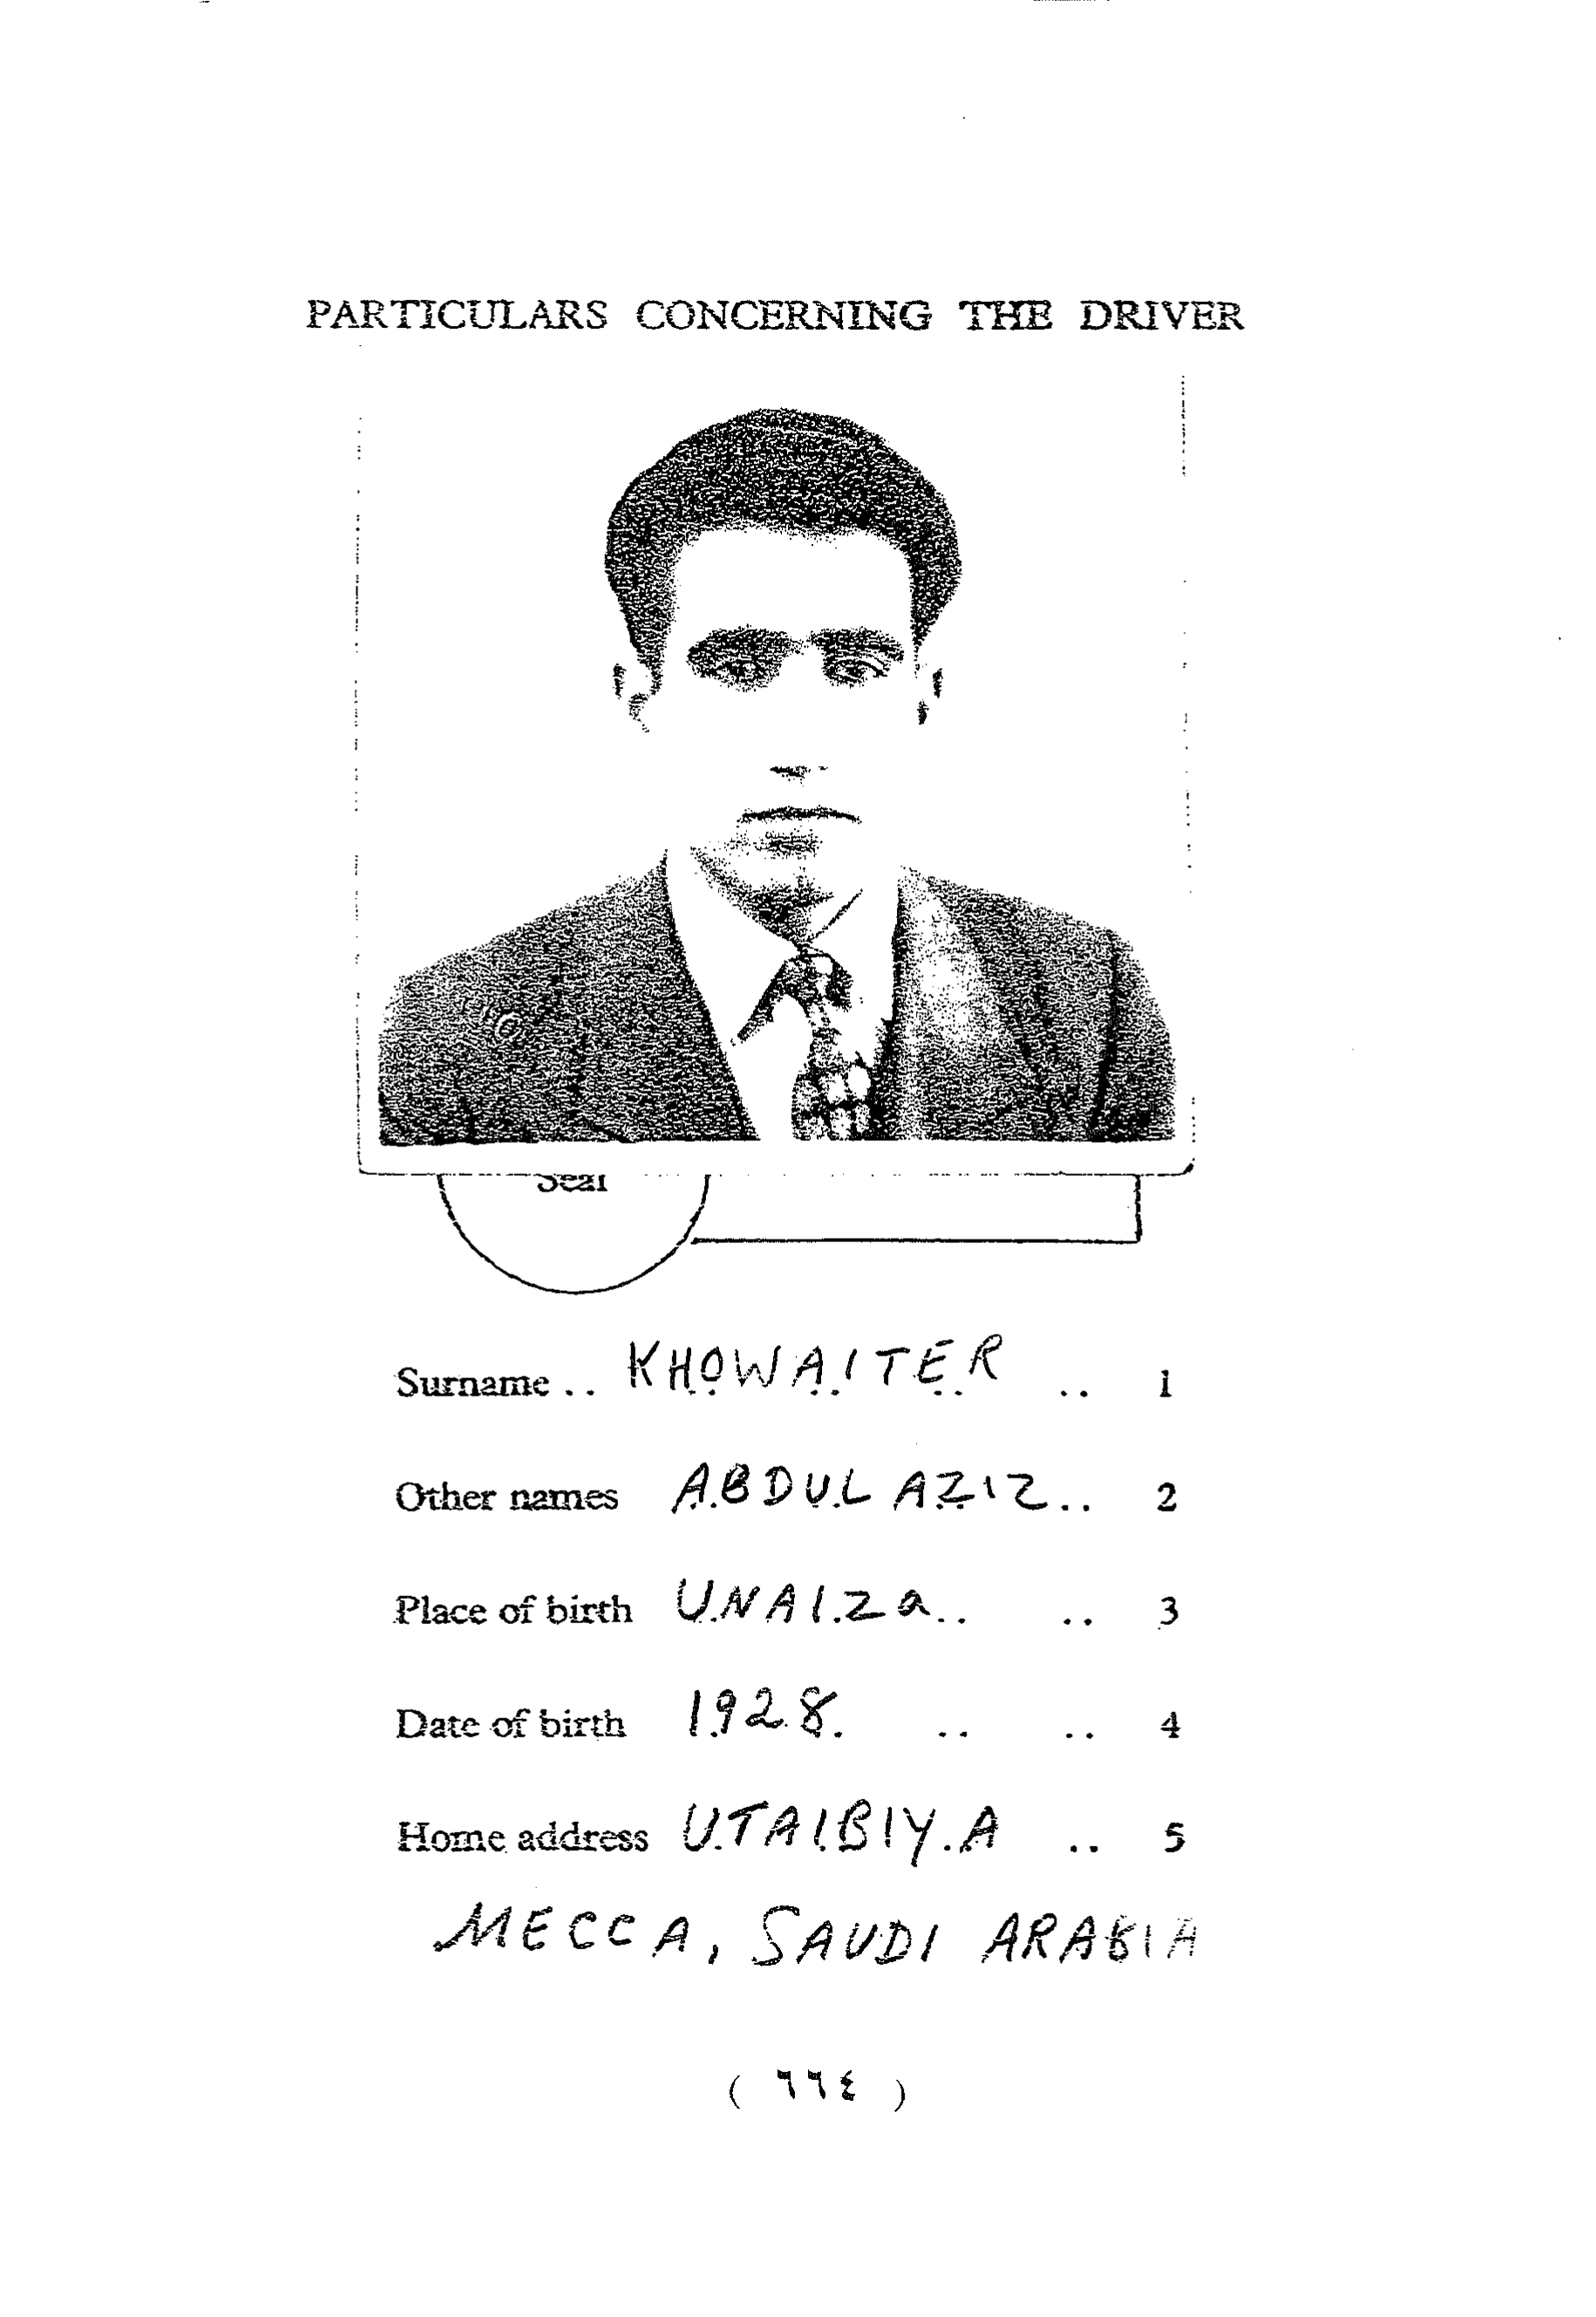 PARTICULARS CONCERNING THE DRIVER
Seal
Surname .. KHOWAITER .. 1
Other names ABDUL AZIZ .. 2
Place of birth UNAIZa .. .. 3
Date of birth 1928. .. .. 4
Home address UTAIBIYA .. 5
MECCA, SAUDI ARABIA
( ٦٦٤ )